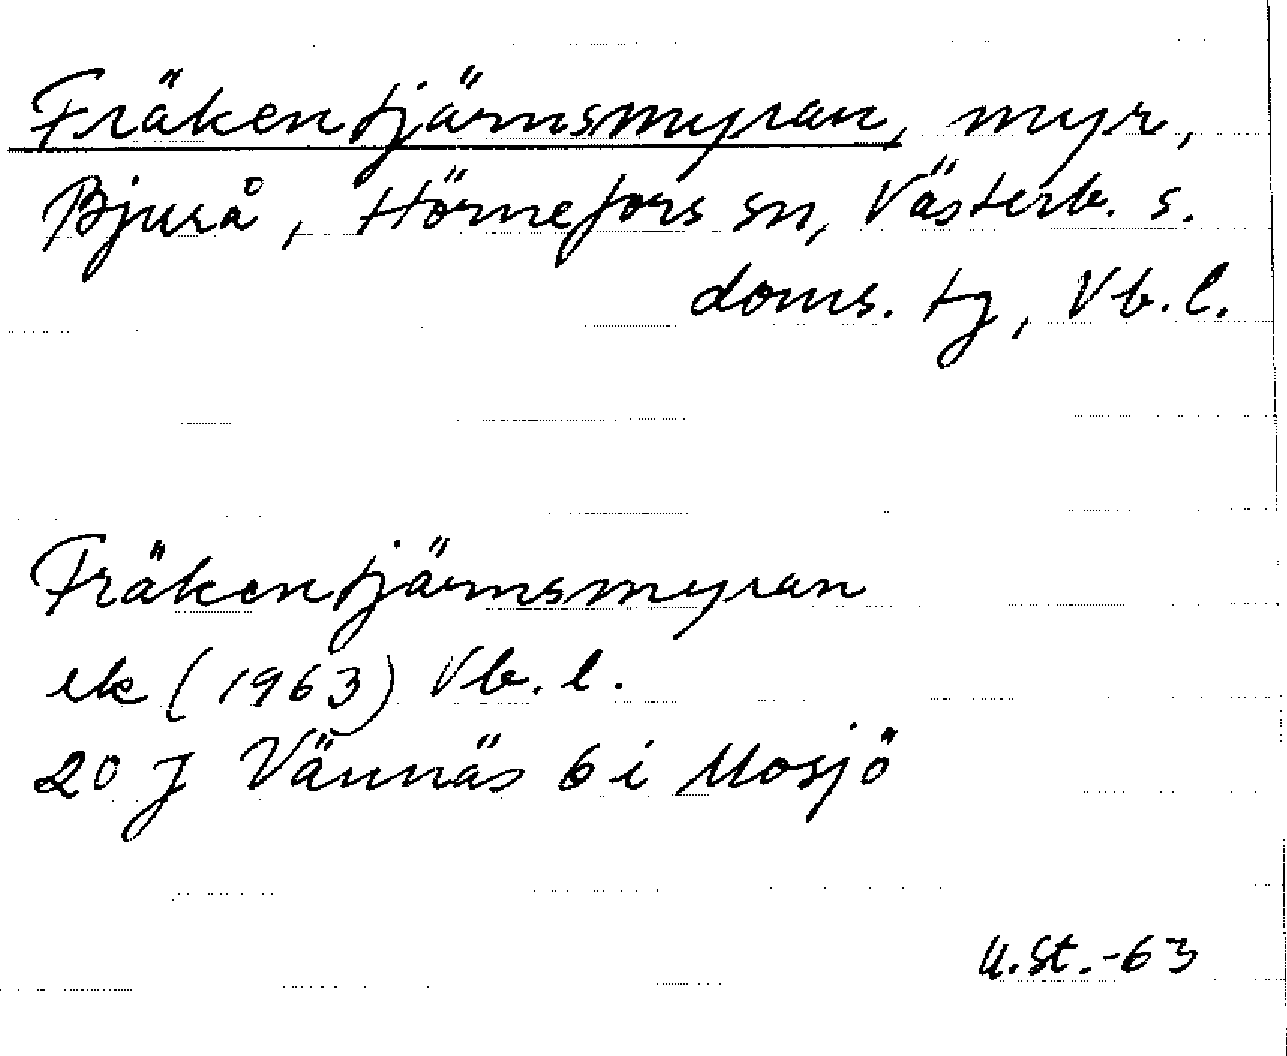 Fräkentjärnsmyran, myr,
Bjurå, Hörnefors sn, Västerb. s.
doms. tg, Vb. l.
Fräkentjärnsmyran
ek (1963) Vb. l.
20 J Vännäs 6 i Mosjö
U. St. -63